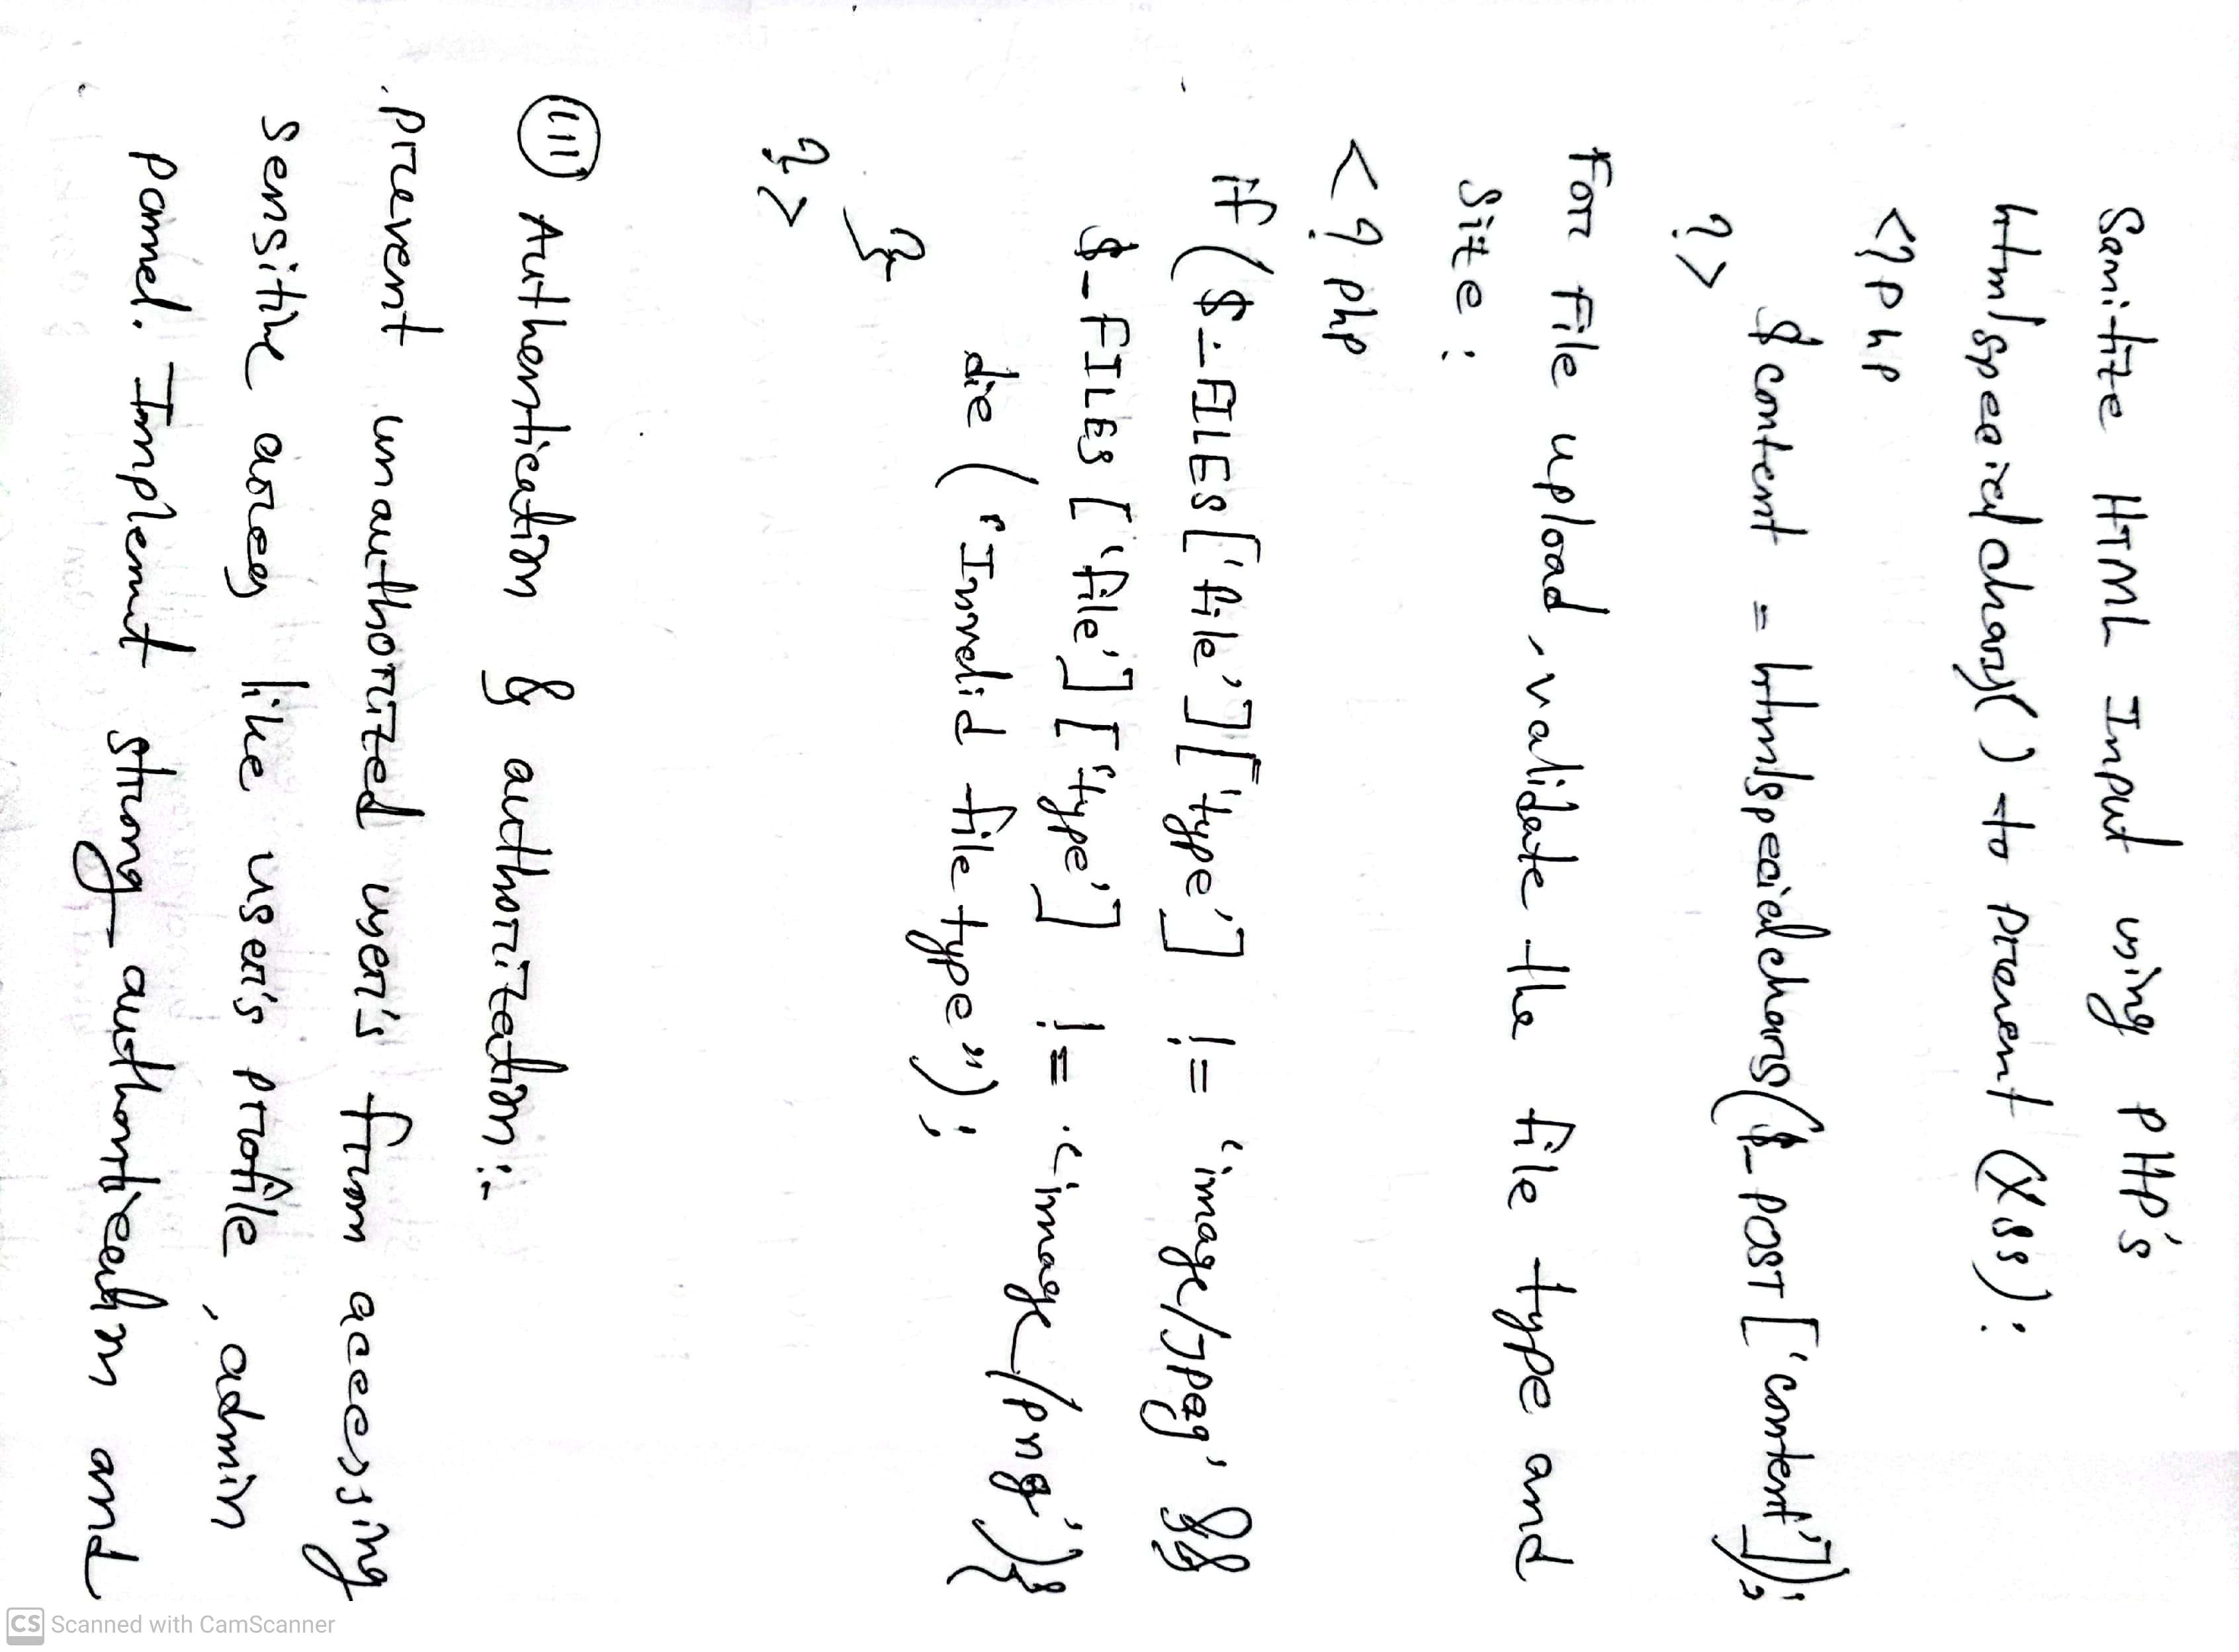 Sanitize HTML Input using PHP's
htmlspecialchars() to prevent (XSS):
<?php
$content = htmlspecialchars($_POST['content']);
?>
For File upload, validate the file type and
Size:
<?php
if ($_FILES['file']['type'] != 'image/jpeg' &&
$_FILES['file']['type'] != 'image/png'){
die ("Invalid file type");
}
?>
(III) Authentication & authorization:-
prevent unauthorized user's from accessing
sensitive areas like user's profile, admin
panel. Implement strong authentication and
CS Scanned with CamScanner